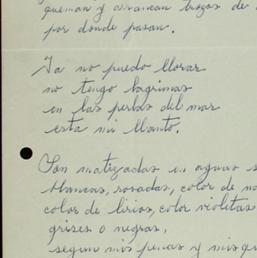 queman y arrancan trozos de
por donde pasan.
Ya no puedo llorar
no tengo lagrimas
en las perlas del mar
esta mi llanto.
Son matizadas en aguas
blancas, rosadas, color de
color de lirios, color violetas
grises o negras,
segun mis penas y mis